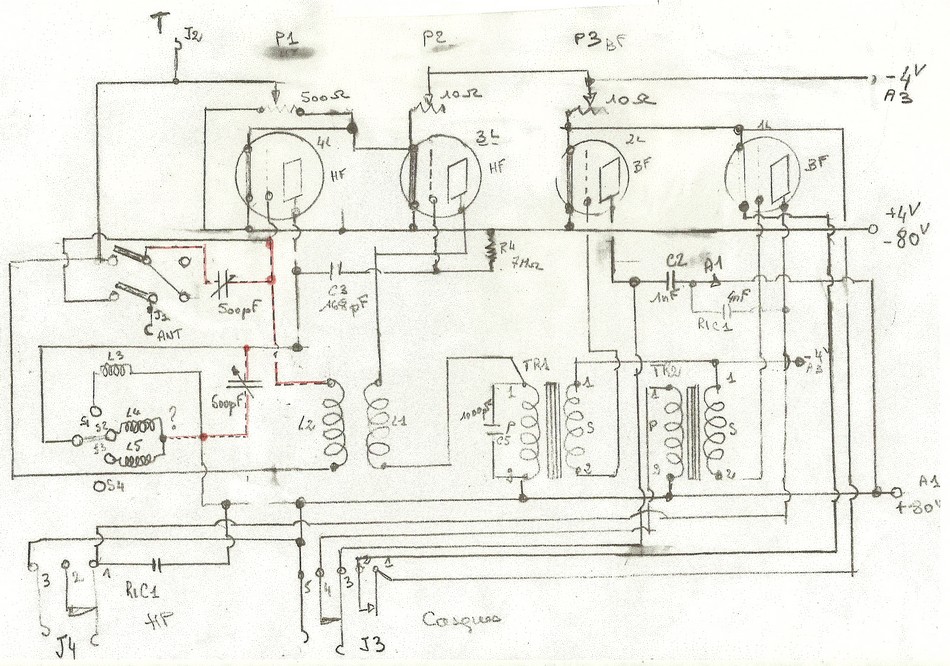 T
J2
P1
P2
P3 BF
-4V
A3
500Ω
10Ω
10Ω
4L
HF
3L
HF
2L
BF
1L
BF
+4V
-80V
R4
7MΩ
C3
168pF
500pF
J1
ANT
C2
1nF
A1
4nF
R1C1
L3
500pF
S1
S2
L4
?
S3
L5
S4
L2
L1
TR1
1000pF
C5
1
P
2
1
S
2
TR2
1
P
2
1
S
2
-4V
A3
A1
+80V
3
2
1
R1C1
HP
J4
5
4
3
2
1
J3
Casques